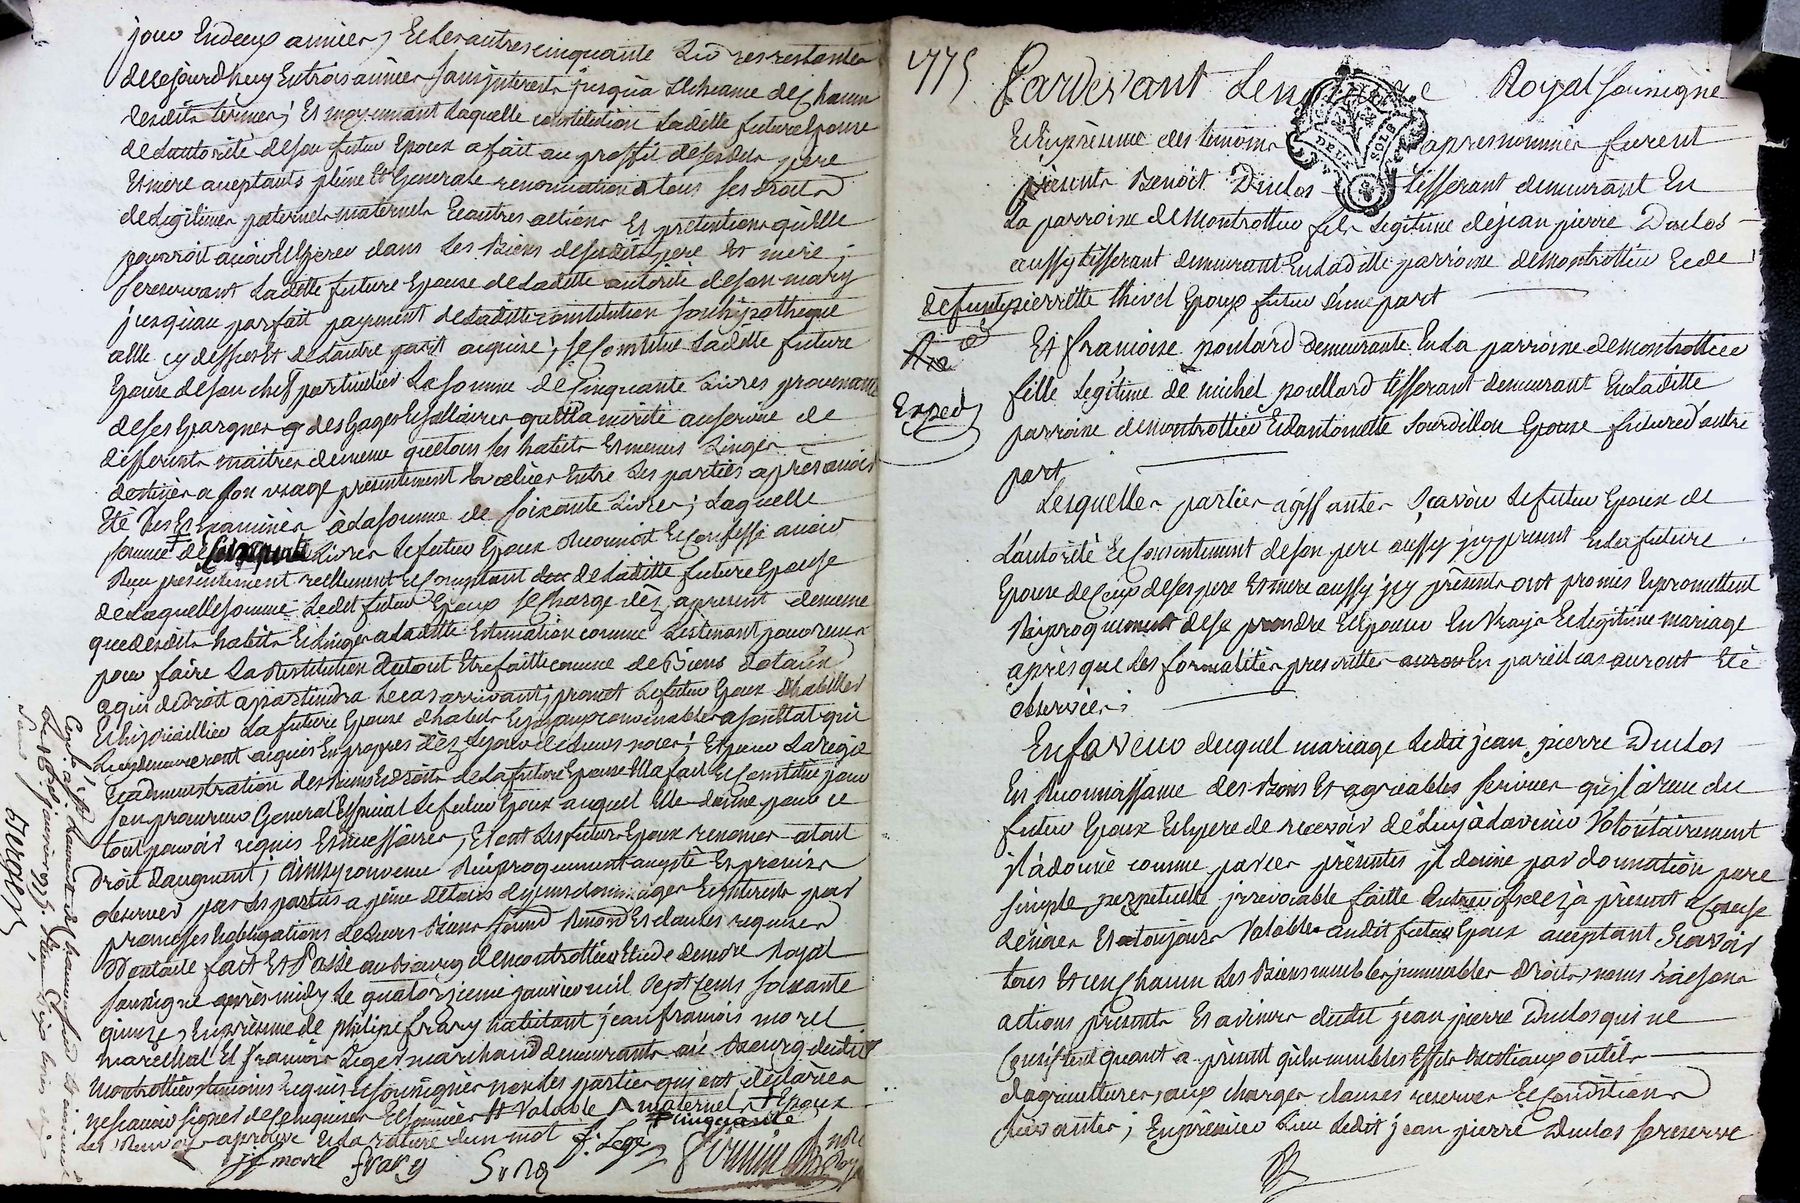 jour En deux années, Et les autres cinquante Livres restantes
de cejourdhuy En trois années sans interests jusqu'a Echeance de Chacun
desdits termes; Et moyennant Laquelle constitution Ladite future Epouse
de Lautorité de son futur Epoux a fait au proffit de sesdits pere
Et mere aceptants pleine Et Generale renonciation a tous ses droits
de Legitimes paternels maternels Et autres actions Et pretentions qu'elle
pourroit avoir Et Esperer dans Les Biens de sesdits pere Et mere;
se reservant Ladite future Epouse de Ladite autorité de son mary
jusqu'au parfait payement de Ladite constitution son hipotheque
a elle cy dessus Et de Lautre part acquise; se Constitue Ladite future
Epouse de son chef particulier La somme de Cinquante Livres provenante
de ses Epargnes des Gages Et sallaires qu'Ella merité au service de
differents maitres de meme que tous ses habits Et menus Linges
destinés a son usage presentement Evalués Entre Les parties apres avoir
Eté Vus Et Examinés a La somme de soixante Livres; Laquelle
somme de Livres Le futur Epoux Reconnoit Et Confesse avoir
Reçu presentement reellement Et Comptant de Ladite future Epouse
de Laquelle somme Ledit futur Epoux se Charge dès apresent de meme
que desdits habits Et Linges a Ladite Estimation comme Les tenant pour reçus
pour faire La Restitution du tout Etre faitte comme de Biens dotaux
a qui de droit apartiendra Le cas arrivant, promet Le futur Epoux d'habiller
Et Enjoailler La future Epouse d'habits Et joyaux convenables a son Etat qui
Luy demeureront acquis En propres dèz Le jour de Leurs noces; Et pour La regie
Et administration des Biens Et droits de La future Epouse Ella fait Et Constitué pour
son procureur General Et special Le futur Epoux auquel Elle donne pour ce
tout pouvoir requis Et necessaire, Et ont Les futurs Epoux renoncer a tout
Droit d'augment; ainsy convenu Reciproquement accepté Et promis
observer par Les parties a peine de tous depens dommages Et interests par
promesses Et obligations de Leurs Biens Renond Et clauses requises
Dont acte fait Et Passé au Bourg de montrottier Etude de moy Royal
soussigné après midy Le quatorzieme janvier mil Sept Cents soixante
quinze, En presence de philipe frary habitant jean françois morel
marechal Et François Leger marchand demeurants au Bourg dudit
montrottier temoins requis Et soussignés non Les parties qui ont declarées
ne sçavoir signer de ce Enquises Et sommées # Valable maternels Epoux
cinquante
Les Renvois aprouve Et La rature d'un mot
jf morel frary f. Leger
Controllé a
1775
Pardevant Le notaire Royal soussigné
Et En presence des temoins apres nommés furent
presents Benoit Duclos tisserant demeurant En
La parroisse de Montrottier fils Legitime de jean pierre Duclos
aussy tisserant demeurant En Ladite parroisse de montrottier Et de
defunte pierrette thivel Epoux futur d'une part
Et françoise poulard Demeurante En La parroisse de montrottier
fille Legitime de michel poullard tisserant demeurant En Ladite
Exped
parroisse de montrottier Et d'antoinette Sourdillon Epouse future d'autre
part
Lesquelles parties agissantes Sçavoir Le futur Epoux de
L'autorité Et Consentement de son pere aussy jcy present Et La future
Epouse de Ceux de ses pere Et mere aussy jcy presents ont promis Et promettent
Reciproquement de se prendre Et Epouser En Vraye Et Legitime mariage
après que Les formalités prescrittes En pareil cas auront Eté
observées;
En faveur duquel mariage Ledit jean pierre Duclos
En Reconnaissance des Bons Et agreables services qu'jl a reçu du
futur Epoux Et Espere de recevoir de Luy à Lavenir Volontairement
jl a donné comme par ces presentes jl donne par donnation pure
simple perpetuelle jrrevocable faitte Entre vifs dez à present a Cause
de noces Et a toujours Valable audit futur Epoux aceptant Scavoir
tous Et un Chacun Les Biens meubles jmmeubles droits noms raisons
actions presents Et avenirs dudit jean pierre Duclos qui ne
Consistent quant a present qu'En meubles Effets Bestiaux outils
d'agricultures, aux charges clauses reserves Et Conditions
suivantes; En premier Lieu Ledit jean pierre Duclos se reserve